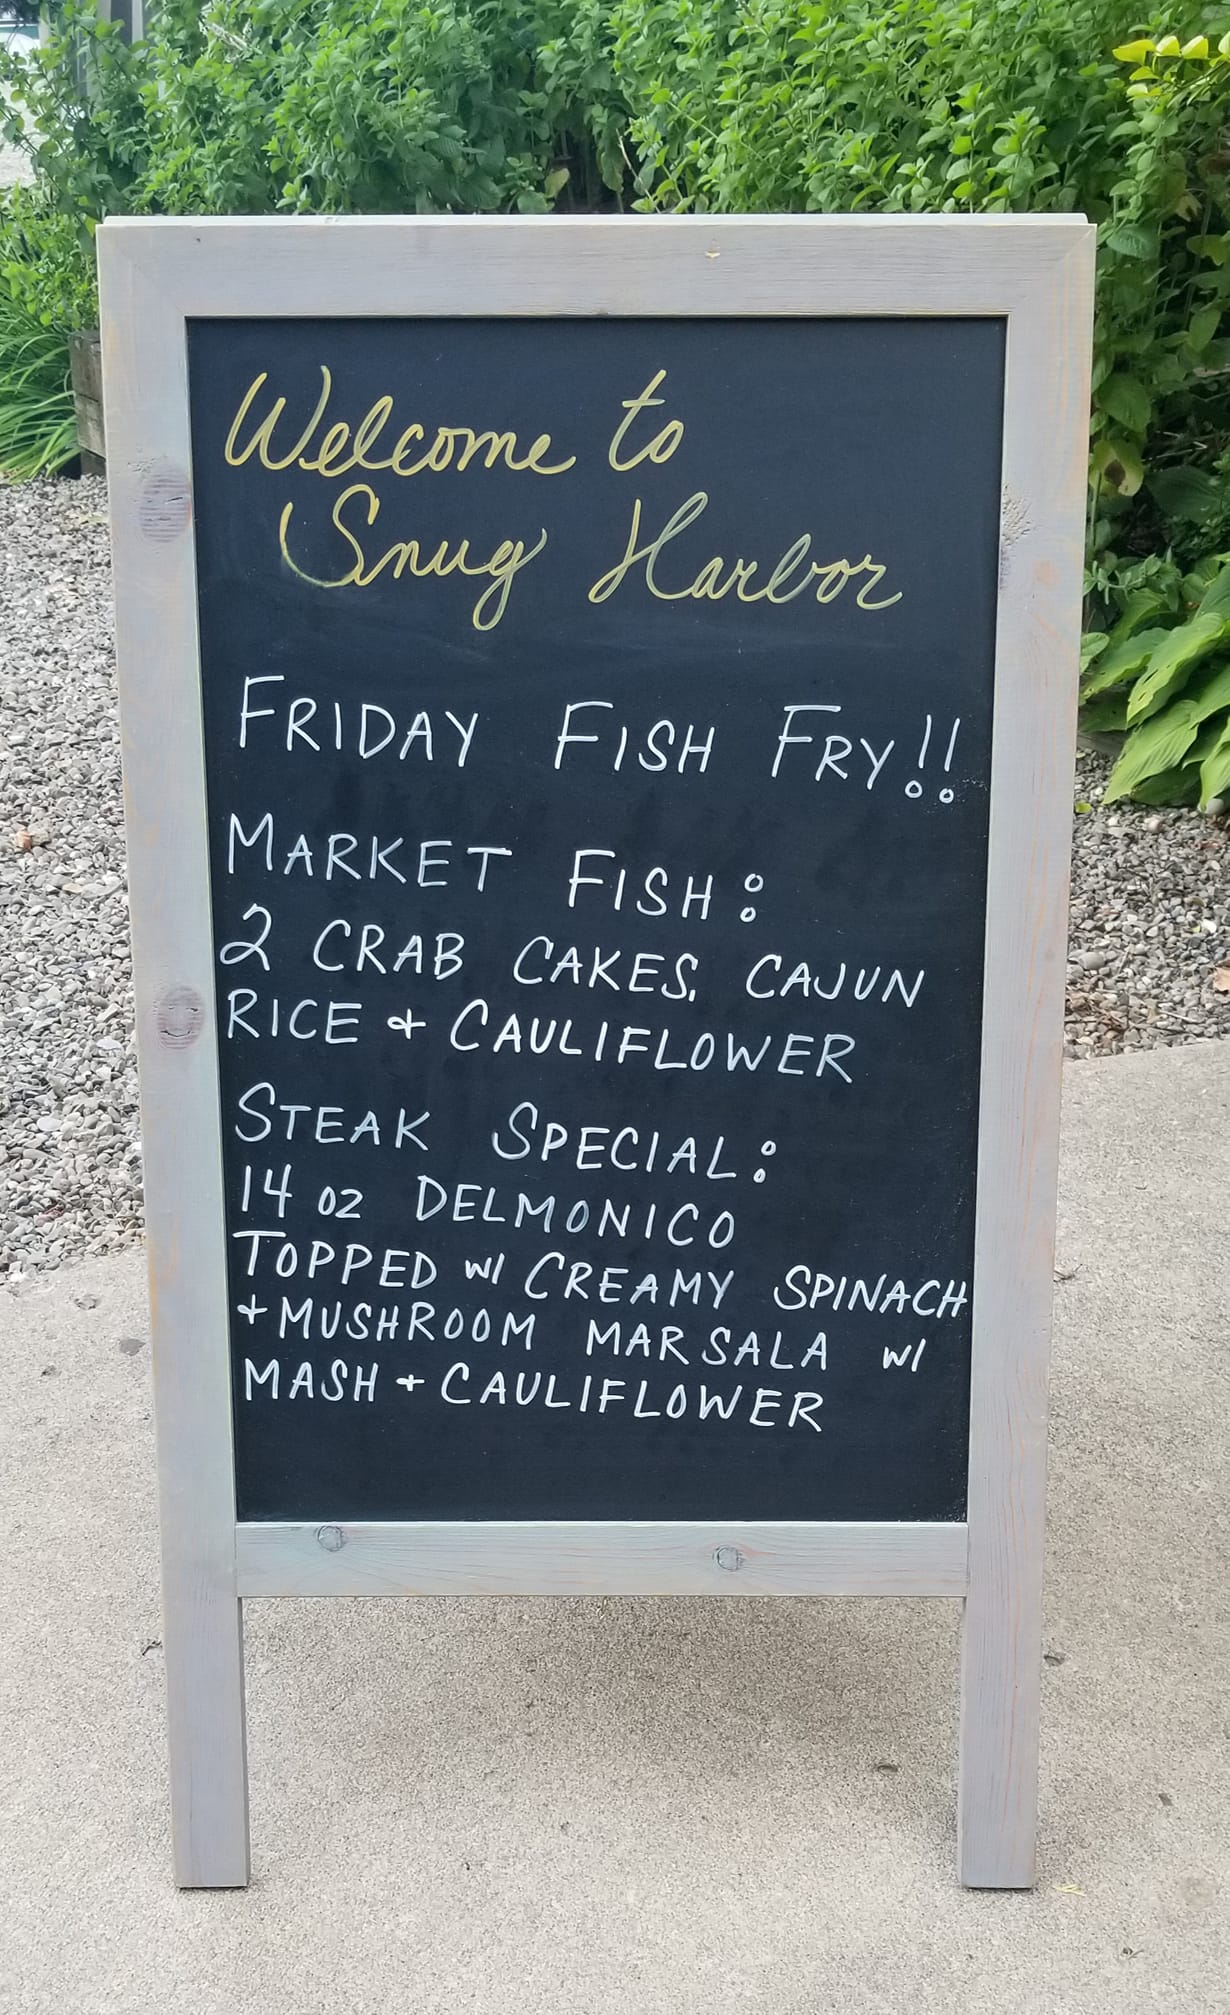 Welcome to
Snug Harbor
FRIDAY FISH FRY!!
MARKET FISH:
2 CRAB CAKES, CAJUN
RICE + CAULIFLOWER
STEAK SPECIAL:
14 OZ DELMONICO
TOPPED W/ CREAMY SPINACH
+ MUSHROOM MARSALA W/
MASH + CAULIFLOWER